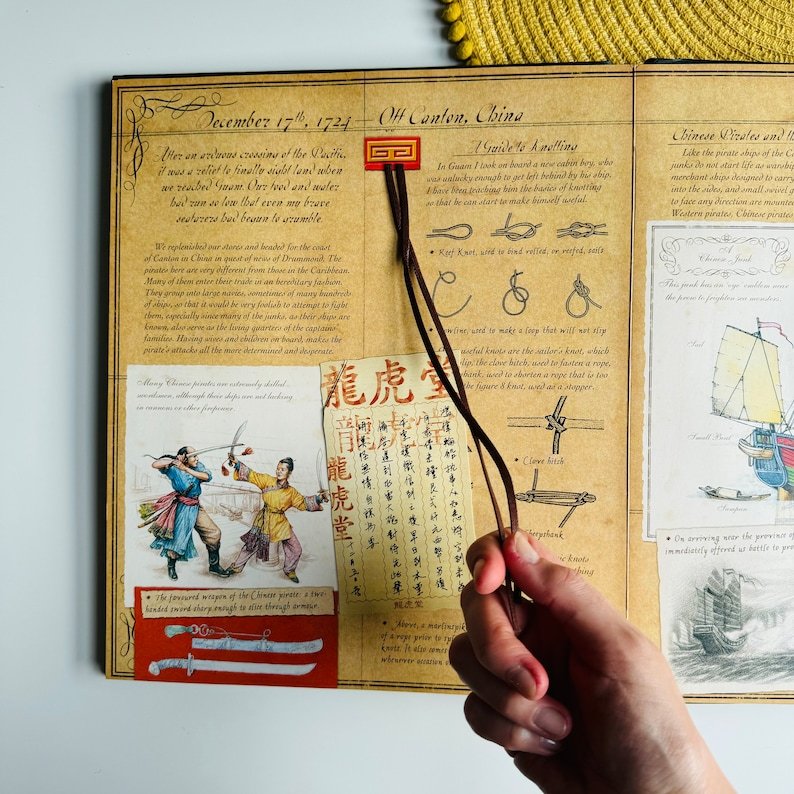 December 17th, 1724 — Off Canton, China
After an arduous crossing of the Pacific,
it was a relief to finally sight land when
we reached Guam. Our food and water
had run so low that even my brave
seafarers had begun to grumble.
We replenished our stores and headed for the coast
of Canton in China in quest of news of Drummond. The
pirates here are very different from those in the Caribbean.
Many of them enter their trade in an hereditary fashion.
They group into large navies, sometimes of many hundreds
of ships, so that it would be very foolish to attempt to fight
them, especially since many of the junks, as their ships are
known, also serve as the living quarters of the captains'
families. Having wives and children on board, makes the
pirate's attacks all the more determined and desperate.
Many Chinese pirates are extremely skilled
swordsmen, although their ships are not lacking
in cannons or other firepower.
• The favoured weapon of the Chinese pirate: a two-
handed sword sharp enough to slice through armour.
龍虎堂
龍虎堂
龍虎堂
龍虎堂
A Guide to Knotting
In Guam I took on board a new cabin boy, who
was unlucky enough to get left behind by his ship.
I have been teaching him the basics of knotting
so that he can start to make himself useful.
• Reef Knot, used to bind rolled, or reefed, sails
Bowline, used to make a loop that will not slip
useful knots are the sailor's knot, which
slip, the clove hitch, used to fasten a rope,
shank, used to shorten a rope that is too
the figure 8 knot, used as a stopper.
• Clove hitch
Sheepshank
knots
• Above, a marlinspik
of a rope prior to spl
knots. It also comes
whenever occasion
Chinese Pirates and th
Like the pirate ships of the Ca
junks do not start life as warship
merchant ships designed to carry
into the sides, and small swivel g
to face any direction are mounted
Western pirates, Chinese pirates
A
Chinese Junk
This junk has an 'eye' emblem near
the prow to frighten sea monsters.
Sail
Small Boat
Sampan
• On arriving near the province of
immediately offered us battle to pro